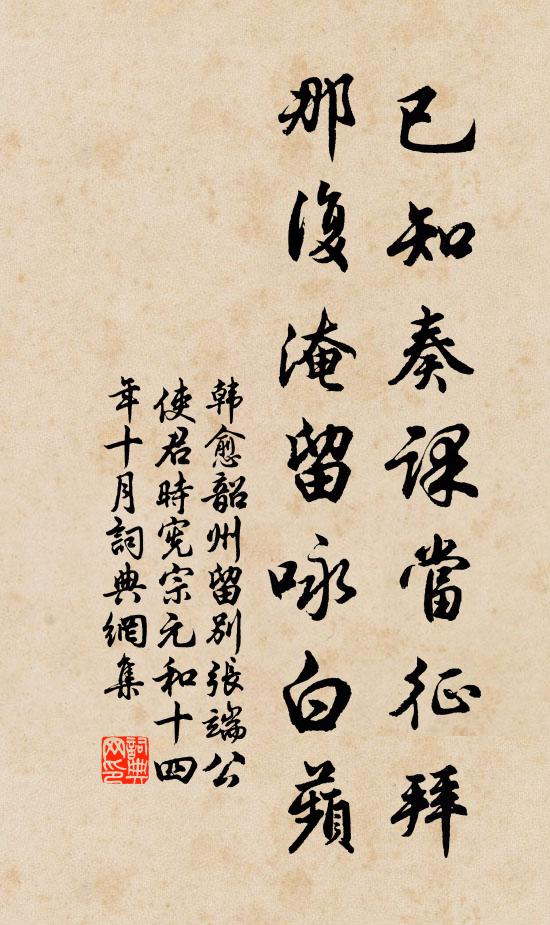 已知奏課當征拜
那復淹留咏白蘋
韓愈韶州留别張端公
使君時宪宗元和十四
年十月詞典網集
詞典
网印